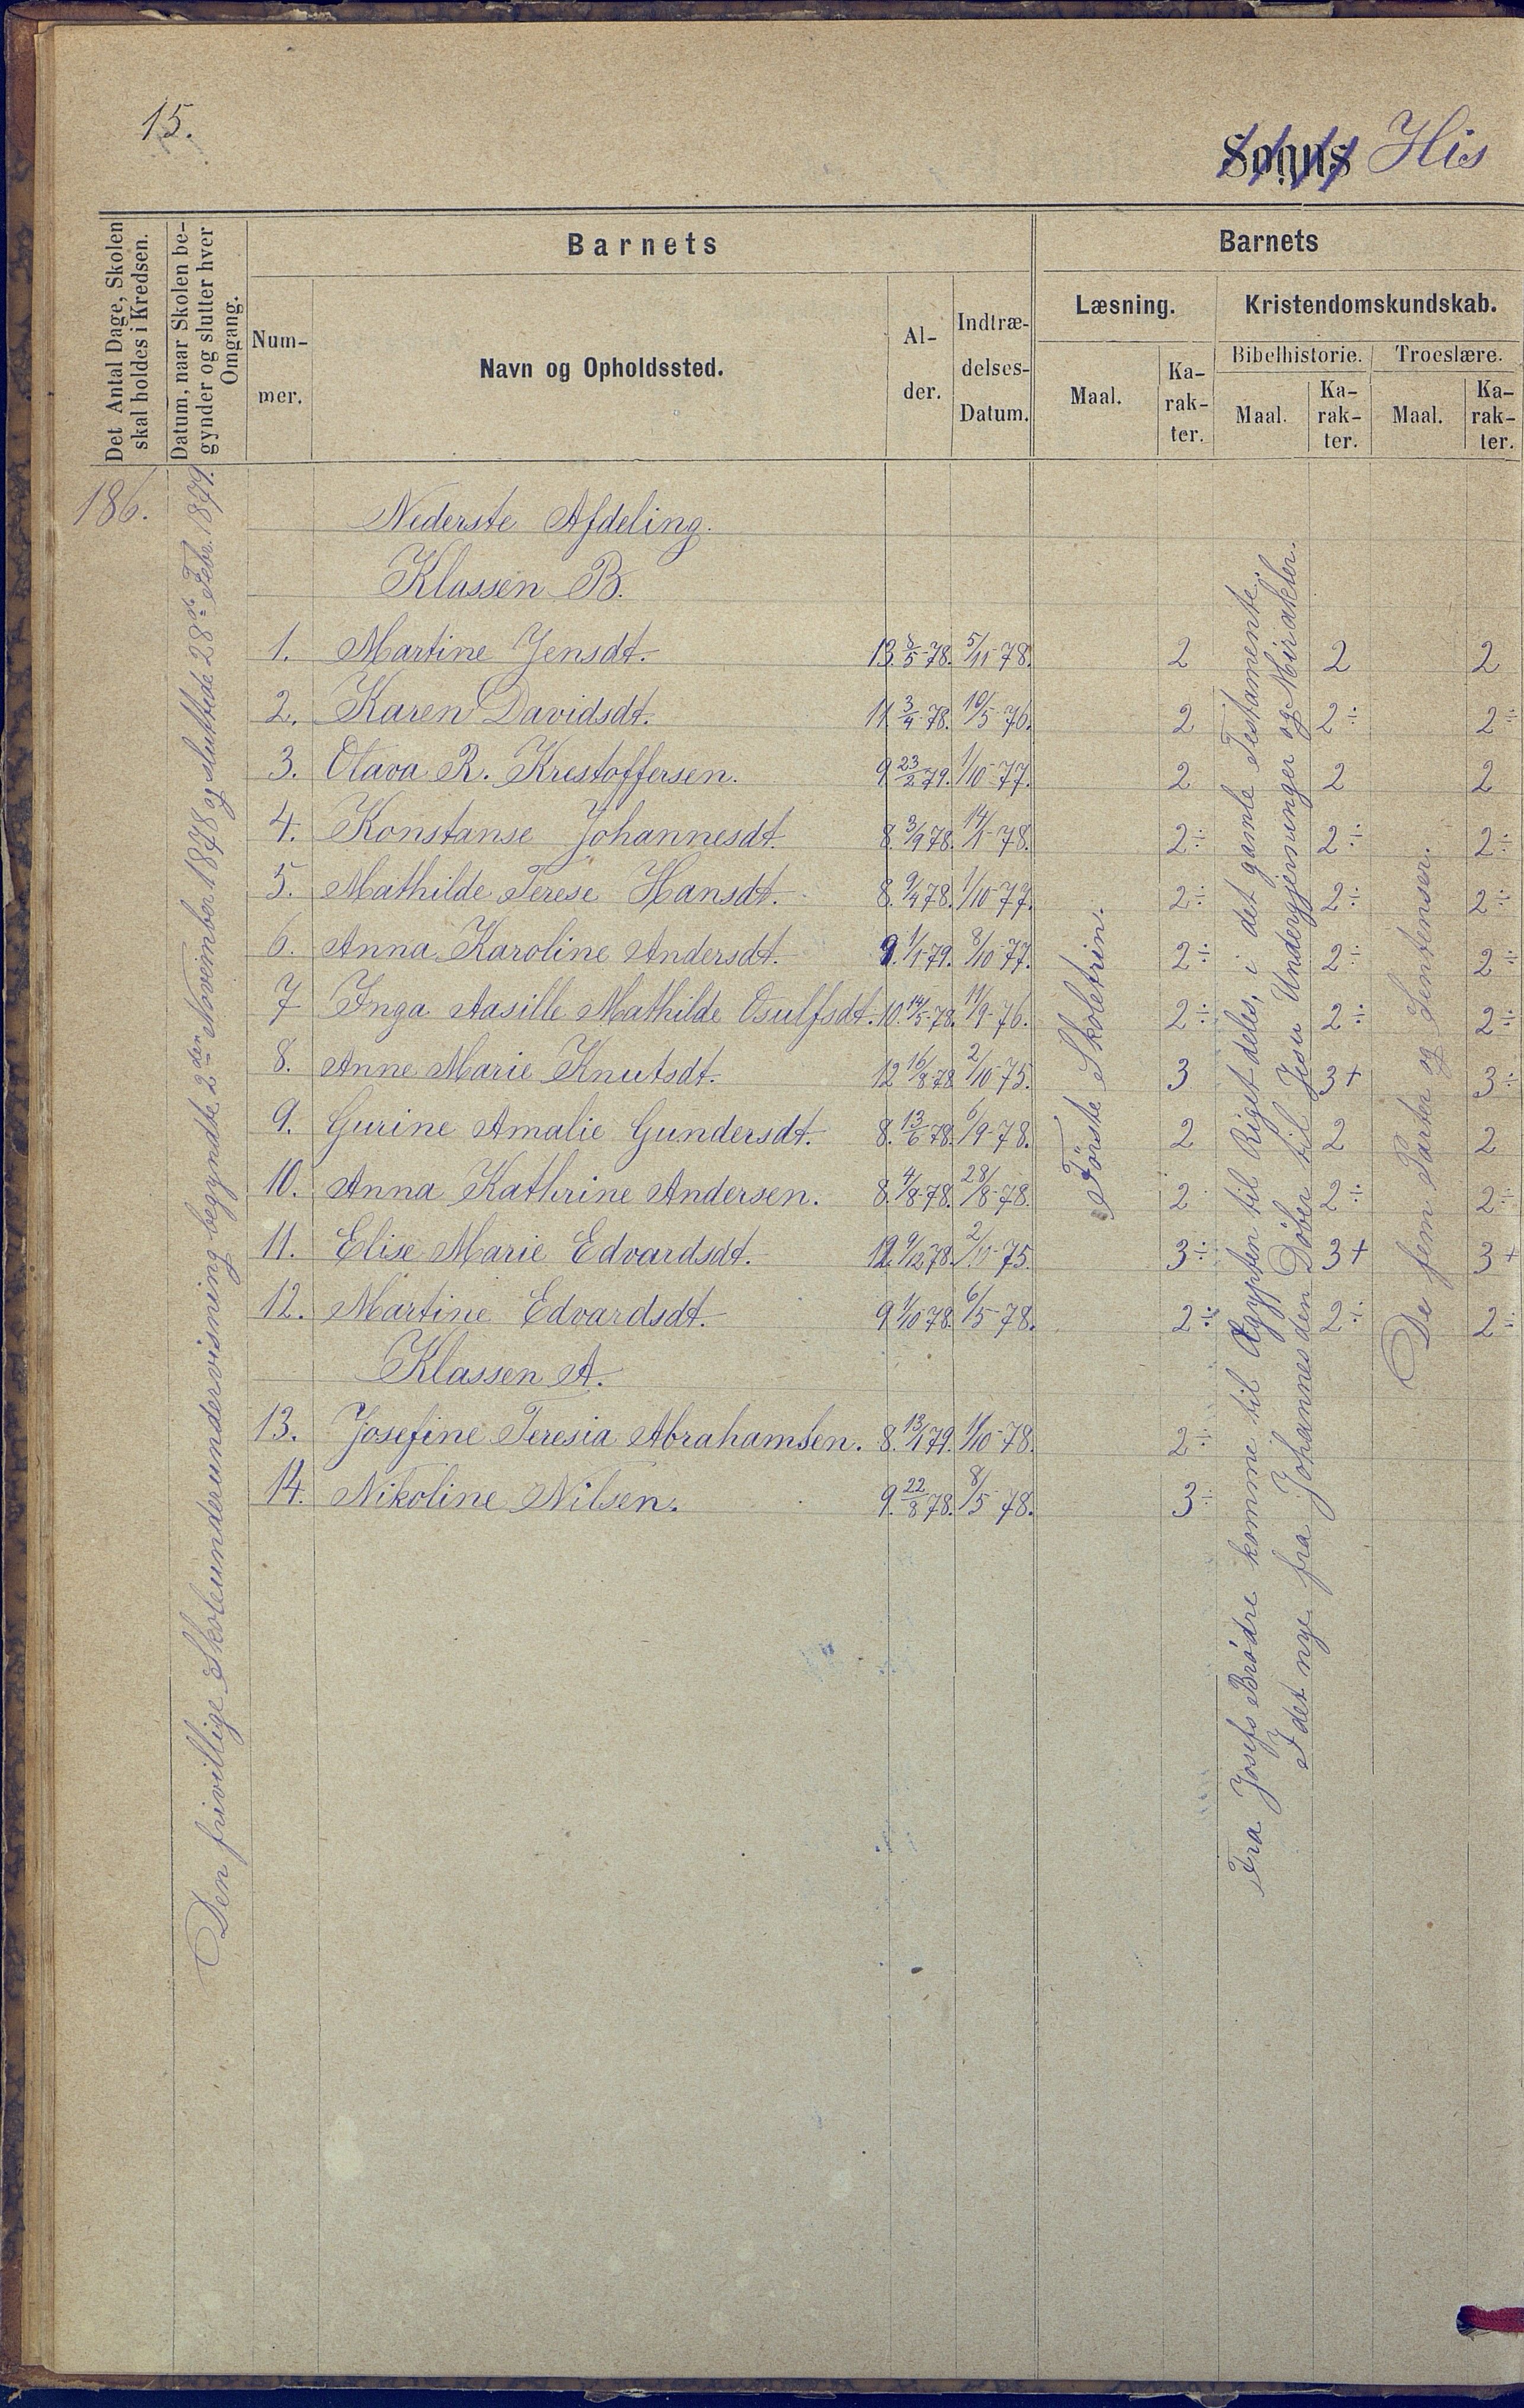 15.
Sogns His
Det Antal Dage, Skolen
skal holdes i Kredsen.
Datum, naar Skolen be-
gynder og slutter hver
Omgang.
Barnets
Num-
mer.
Navn og Opholdssted.
Al-
der.
Indtræ-
delses-
Datum.
Barnets
Læsning.
Maal.
Ka-
rak-
ter.
Kristendomskundskab.
Bibelhistorie.
Maal.
Ka-
rak-
ter.
Troeslære.
Maal.
Ka-
rak-
ter.
186.
Den frivillige Skoleunderundervisning begyndte 2den November 1878 og sluttede 28de Febr. 1879.
Nederste Afdeling.
Klassen B.
1. Martine Jensdt. 13. 8/5-78. 5/11-78. 2 2 2
2. Karen Davidsdt. 11 3/4-78. 10/5-76. 2 2÷ 2÷
3. Olava R. Krestoffersen. 9 23/2 79. 1/10-77. 2 2 2
4. Konstanse Johannesdt. 8. 3/9 78. 14/1-78. 2÷ 2÷ 2÷
5. Mathilde Terese Hansdt. 8. 9/4 78. 1/10-77. 2÷ 2÷ 2÷
6. Anna Karoline Andersdt. 9. 1/1-79. 8/10-77. 2÷ 2÷ 2÷
7 Inga Aasille Mathilde Osulfsdt. 10. 14/5-78. 11/9-76. 2÷ 2÷ 2÷
8. Anne Marie Knutsdt. 12 16/8-78 2/10-75. 3 3+ 3÷
9. Gurine Amalie Gundersdt. 8. 13/6 78. 6/9-78. 2 2 2
10. Anna Kathrine Andersen. 8. 4/8-78. 28/8-78. 2 2÷ 2÷
11. Elise Marie Edvardsdt. 12. 9/12 78. 2/11-75. 3÷ 3+ 3+
12. Martine Edvardsdt. 9 1/10 78. 6/5-78. 2÷ 2÷ 2÷
Klassen A.
13. Josefine Teresia Abrahamsen. 8. 13/1 79. 1/10-78. 2÷
14. Nikoline Nilsen. 9. 22/8 78. 8/5-78. 3÷
Første Skoletrin.
Fra Josefs Brødre komme til Ægypten til Riget deles, i det gamle Testamente;
I det nye fra Johannes den Døber til Jesu Undergjerninger og Mirakler.
De fem Parter og Sentenser.